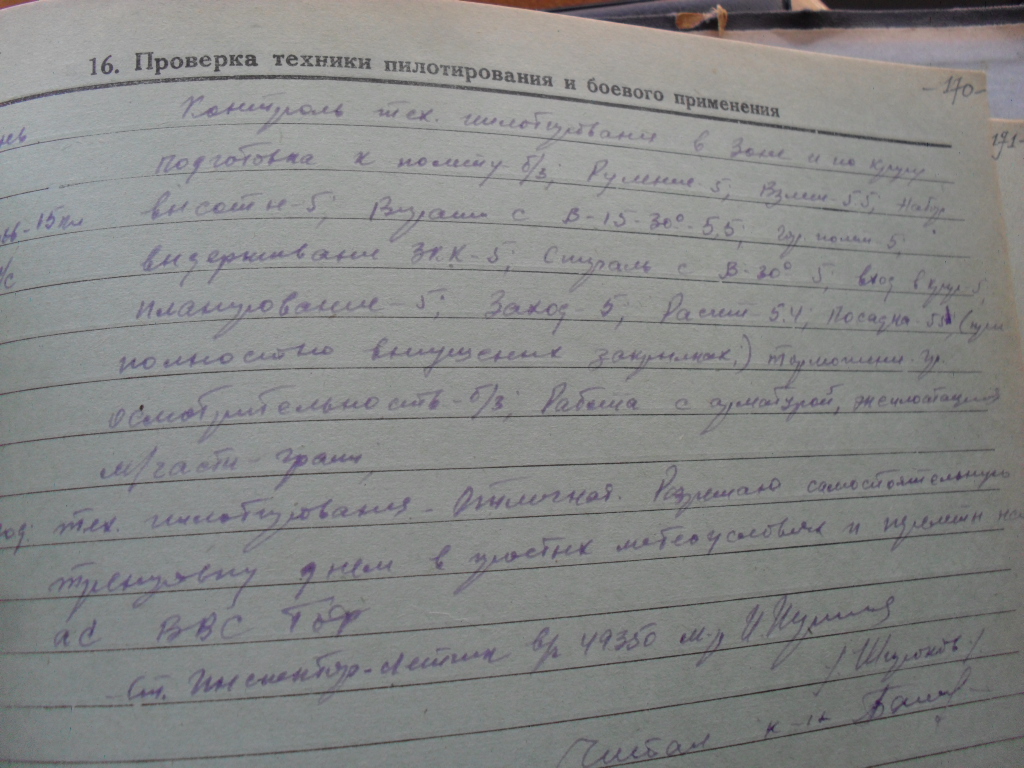 16. Проверка техники пилотирования и боевого применения
-170-
171-
Контроль тех. пилотирования в зоне и по кругу
подготовка к полету-б/з; Руление-5; Взлет-5.5; Набор
15
высоты-5; Виражи с В-15-30°-5.5; гор. полет-5;
выдерживание ЗКК-5; Спираль с В-30° 5; вход в круг-5;
планирование-5; Заход-5; Расчет-5.4; посадка-55; (при
полностью выпущенных закрылках.)
осмотрительность-б/з; Работа с арматурой, эксплоатация
м/части - грам.
тех. пилотирования - Отличная. Разрешаю самостоятельную
тренировку днем в простых метеоусловьях и перелеты на
ас ВВС ТОФ
Ст. Инспектор-летчик в/ч 49350 м-р
Читал